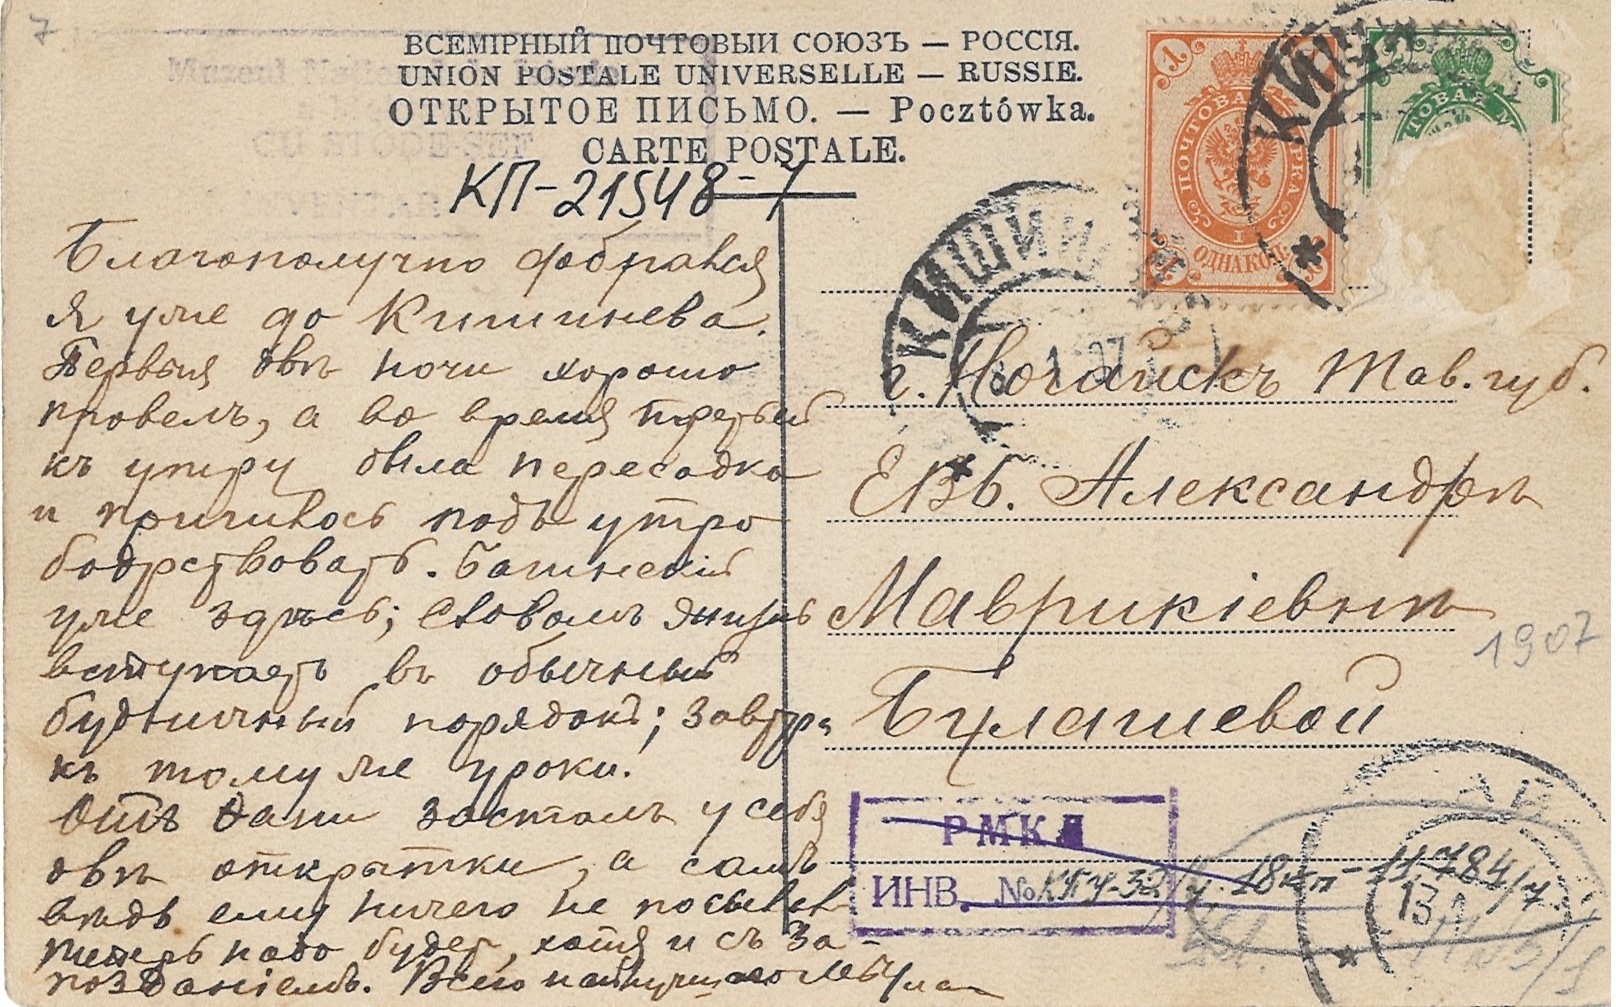 7
ВСЕМІРНЫЙ ПОЧТОВЫЙ СОЮЗЪ — РОССІЯ.
UNION POSTALE UNIVERSELLE — RUSSIE.
ОТКРЫТОЕ ПИСЬМО. — Pocztówka.
CARTE POSTALE.
КП-21548-7
Благополучно добрался
я уже до Кишинева.
Первыя двѣ ночи хорошо
провелъ, а во время третьей
къ утру была пересадка
и пришлось подъ утро
бодрствовать.
уже здѣсь; словомъ жизнь
вступаетъ въ обычный
будничный порядокъ; завтра
къ тому же уроки.
Отъ Дани засталъ у себя
двѣ открытки, а самъ
вѣдь ему ничего не посылалъ
теперь надо будет, хотя и съ за-
позданіемъ. Всего наилучшаго
1
ПОЧТОВАЯ МАРКА
1
ОДНАКОП.
КИШИН
КИШИ
8 1 07
г. Ногайскъ Тав. губ.
ЕВБ. Александрѣ
Маврикіевнѣ
Булашевой
1907
РМК
ИНВ. № КПУ-32/4. 18кп-11784/4
АЙ
13